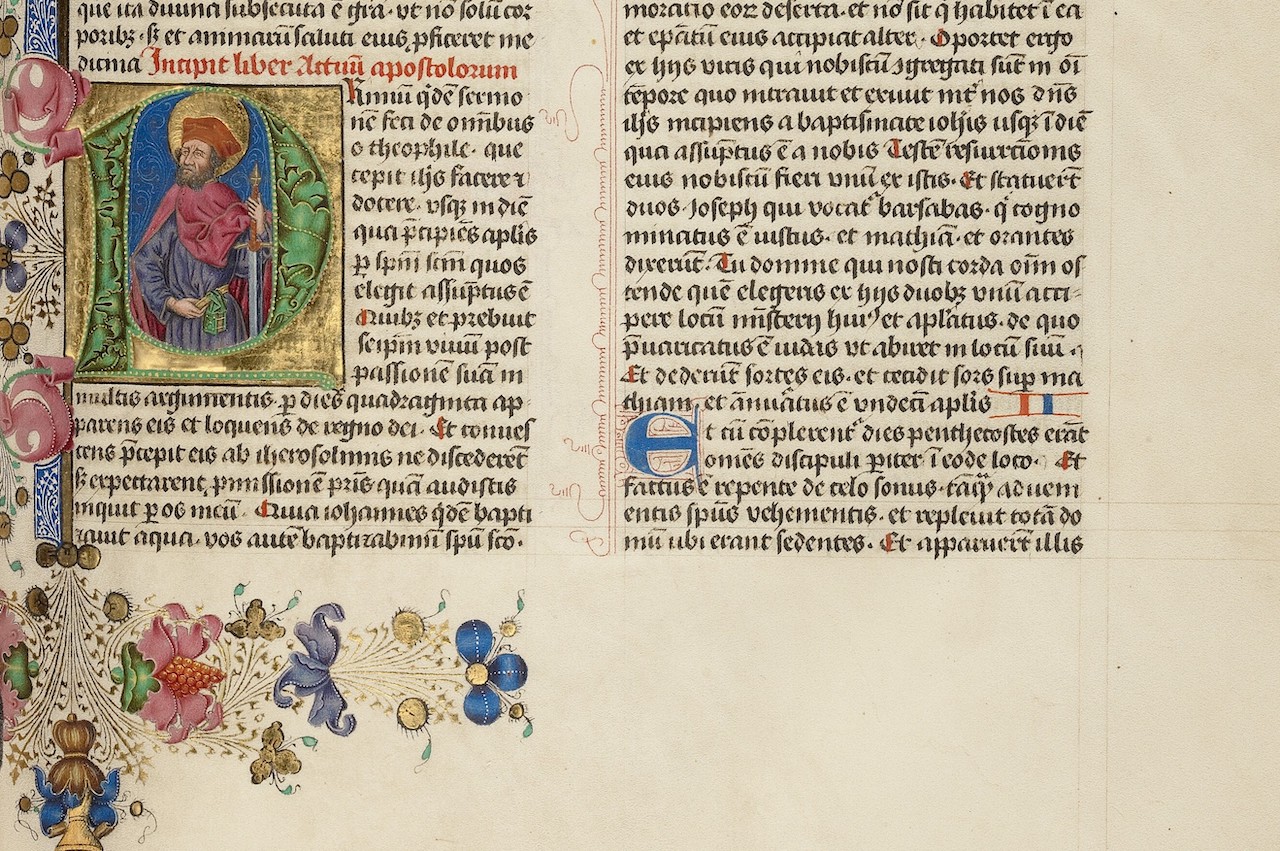 que ita divina subsecuta ē gr̄a. vt nō solū cor
poribꝫ. sꝫ et animarū saluti eius ꝓficeret me
dicina Incipit liber Actuū apostolorum
PRimū q̇dē sermo
nē feci de omībus
o theophile. que
cepit ih̄s facere ⁊
docere. vsqꝫ in diē
qua p̄cipiēs apl̄is
ꝑ spm̄ scm̄ quos
elegit assūptus ē
Quibꝫ et prebuit
seip̄m vivū post
passionē suā in
multis argumentis. ꝑ dies quadraginta ap
parens eis et loquens de regno dei. Et conues
cens p̄cepit eis ab iherosolimis ne discederēt
sꝫ expectarent ꝓmissionē pr̄is quā audistis
inquit ꝑ os meū. Quia iohannes q̇dē bapti
zauit aqua. vos autē baptizabimī spū scō.
moracio eoꝝ deserta. et nō sit q̇ habitet ī ea
et ep̄atū eius accipiat alter. Oportet ergo
ex hijs viris qui nobiscū ꝯgregati sūt in oī
tēpore quo intrauit et exiuit int̄ nos dn̄s
ih̄s incipiens a baptismate ioh̄is usqꝫ ī diē
qua assūptus ē a nobis Testē resurrctionis
eius nobiscū fieri vnū ex istis. Et statuer̄t
duos. Joseph qui vocat᷑ barsabas. q̇ cogno
minatus ē iustus. et mathiā. et orantes
dixerūt. Tu domine qui nosti corda oīm os
tende quē elegeris ex hijs duobꝫ vnū acci-
pere locū mīsterij huiꝰ et apl̄atus. de quo
p̄uaricatus ē iudas vt abiret in locū suū.
Et dederūt sortes eis. et cecidit sors suꝑ ma
thiam et ānūātus ē vndecī apl̄is II
Et cū cōplerent᷑ dies penthecostes erāt
omēs discipuli ꝑiter ī eodē loco. Et
factus ē repente de celo sonus. tāqȝ̄ adueni
entis spūs vehementis. et repleuit totā do
mū ubi erant sedentes. Et apparuer̄t illis